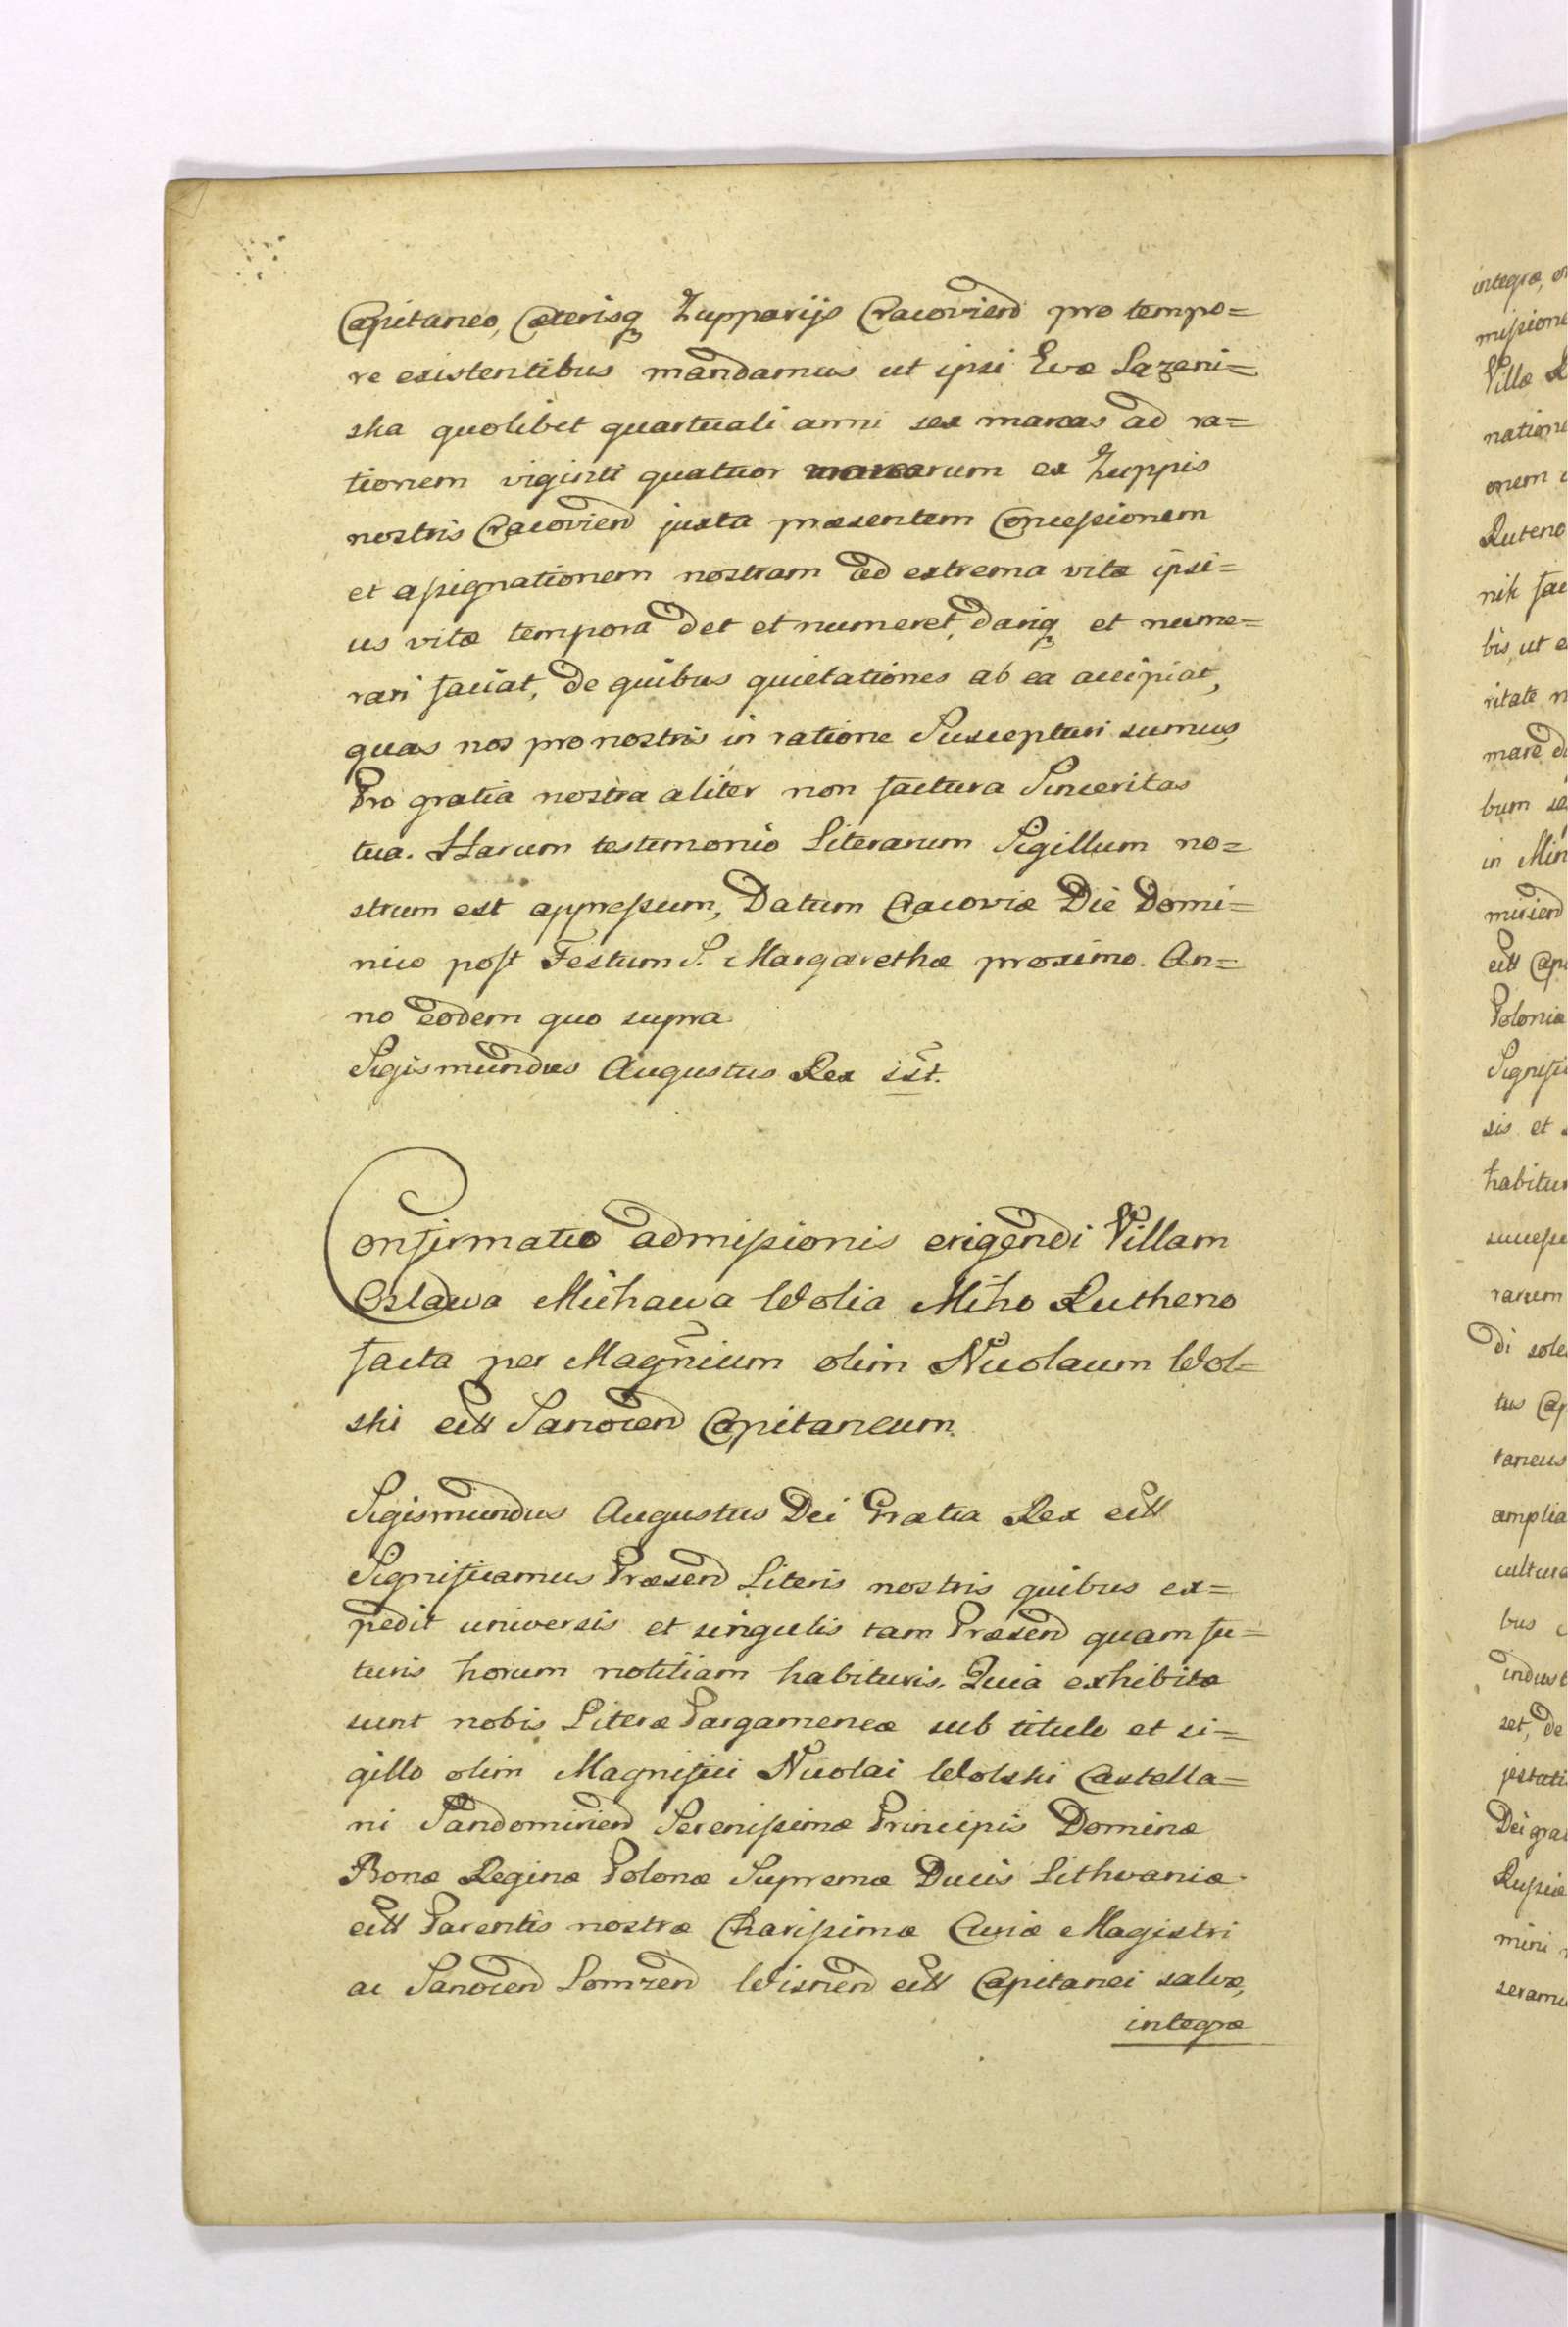 Capitaneo, Cæterisq Zupparijs Cracoviend pro tempo=
re existentibus mandamus ut ipsi Evæ Lazeni=
ska quolibet quartuali anni sex marcas ad ra=
tionem viginti quatuor marcarum ex Zuppis
nostris Cracoviend juxta præsentem Concessionem
et assignationem nostram ad extrema vitæ ipsi=
us vitæ tempora det et numeret, dariq et nume=
rari faciat, de quibus quietationes ab ea accipiat,
quas nos pro nostris in ratione Suscepturi sumus
Pro gratia nostra aliter non factura Sinceritas
tua. Harum testimonio Literarum Sigillum no=
strum est appressum, Datum Cracoviæ Die Domi=
nico post Festum S. Margarethæ proximo. An=
no eodem quo supra
Sigismundus Augustus Rex sst.
Confirmatio admissionis erigendi Villam
Oslawa Michawa Wolia Miho Rutheno
facta per Magnicum olim Nicolaum Wol=
ski ett Sanocend Capitaneum.
Sigismundus Augustus Dei Gratia Rex ett
Significamus Præsend Literis nostris quibus ex=
pedit universis et singulis tam Præsend quam fu=
turis horum notitiam habituris. Quia exhibitæ
sunt nobis Literæ Pargameneæ sub titulo et si=
gillo olim Magnifici Nicolai Wolski Castella=
ni Sandomiriend Serenissimæ Principis Dominæ
Bonæ Reginæ Polonæ Supremæ Ducis Lithvaniæ
ett Parentis nostræ Charissimæ Curiæ Magistri
ac Sanocend Lomzend Wisnend ett Capitanei salvæ,
integræ
integræ,
missione
Villæ
natione
onem
Ruteno
nik fac
bis, ut
ritate
mare
bum
in
miriend
ett Cap
Polonia
Signifi
sis et
habitur
successo
rarum
di sole
tus Cap
taneus
amplia
cultura
bus
indust
set, de
jestati
Dei gra
Russiæ
mini
seramu